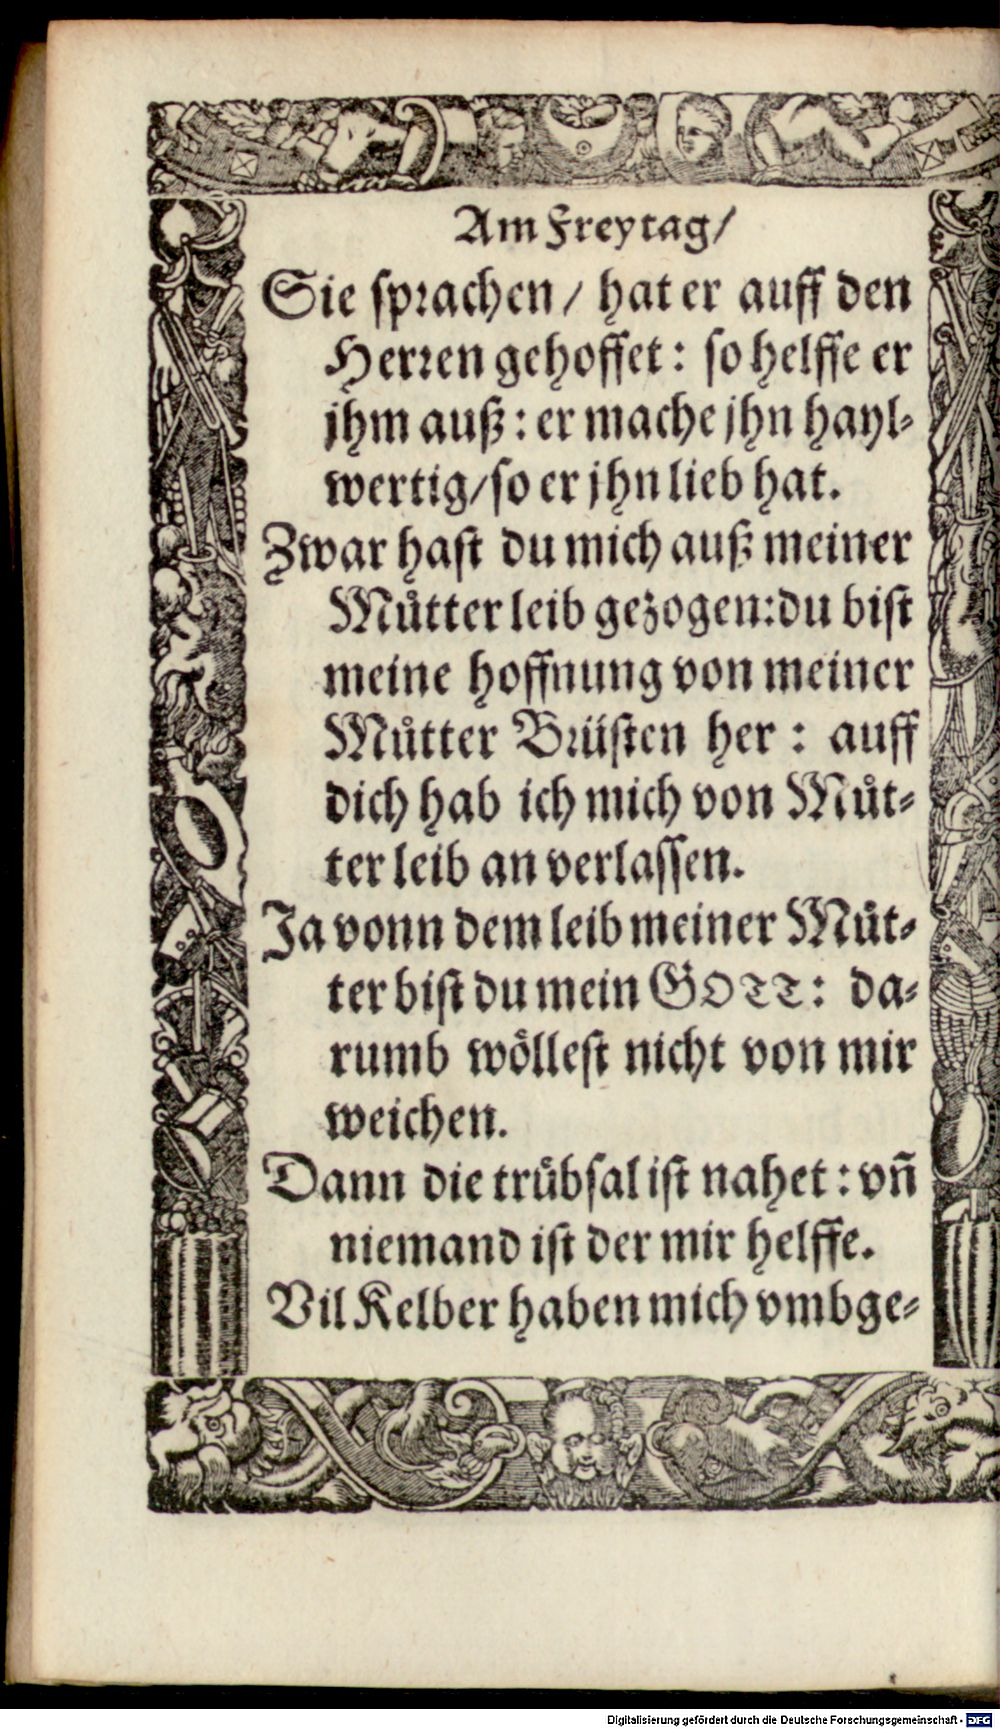 Am Freytag/
Sie sprachen / hat er auff den
Herren gehoffet: so helffe er
jhm auß: er mache jhn hayl⸗
wertig/so er jhn lieb hat.
Zwar hast du mich auß meiner
Můtter leib gezogen:du bist
meine hoffnung von meiner
Můtter Brüsten her : auff
dich hab ich mich von Můt⸗
ter leib an verlassen.
Ja vonn dem leib meiner Můt⸗
ter bist du mein GOTT: da⸗
rumb wöllest nicht von mir
weichen.
Dann die trübsal ist nahet : vñ
niemand ist der mir helffe.
Vil Kelber haben mich vmbge⸗
Digitalisierung gefördert durch die Deutsche Forschungsgemeinschaft - DFG